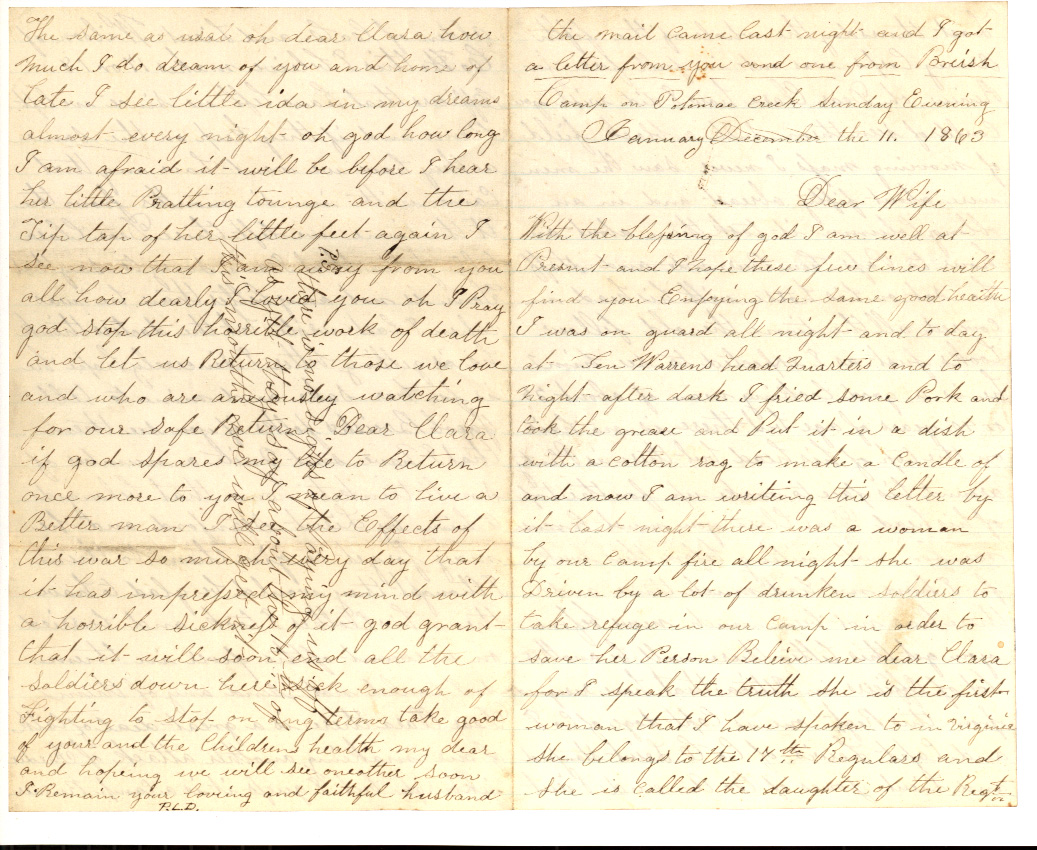 the mail came last night and I got
a letter from you and one from Breish
Camp on Potomac Creek Sunday Evening
January December the 11. 1863
Dear Wife
With the blessing of god I am well at
Present and I hope these few lines will
find you Enjoying the same good health
I was on guard all night and to day
at Jen Warrens head Quarters and to
Night after dark I fried some Pork and
took the grease and Put it in a dish
with a cotton rag to make a Candle of
and now I am writing this letter by
it last night there was a woman
by our Camp fire all night she was
Driven by a lot of drunken soldiers to
take refuge in our Camp in order to
save her Person Beleive me dear Clara
for I speak the truth she is the first
woman that I have spoken to in Virginia
she belongs to the 17th Regulars and
she is called the daughter of the Regt
The same as usual oh dear Clara how
Much I do dream of you and home of
late I see little ida in my dreams
almost every night oh god how long
I am afraid it will be before I hear
her little Pratling tounge and the
Tip tap of her little feet again I
see now that I am away from you
all how dearly I loved you oh I Pray
god stop this horrible work of death
and let us Return to those we love
and who are anxiousley watching
for our safe Return Dear Clara
if god spares my life to Return
once more to you I mean to live a
Better man I see the Effects of
this war so much every day that
it has impressed my mind with
a horrible sickness of it god grant
that it will soon end all the
soldiers down here sick enough of
Fighting to stop on any terms take good
of your and the Childrens health my dear
and hoping we will see oneother soon
I Remain your loveing and faithful husband
P.L.D.
P.S. there is no signs of